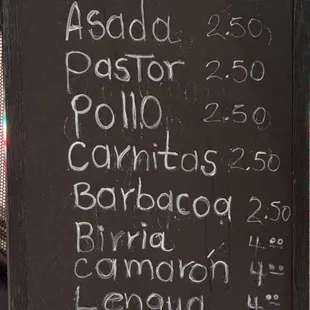 Asada 2.50
Pastor 2.50
Pollo 2.50
Carnitas 2.50
Barbacoa 2.50
Birria 4.00
Camarón 4.00
Lengua 4.00